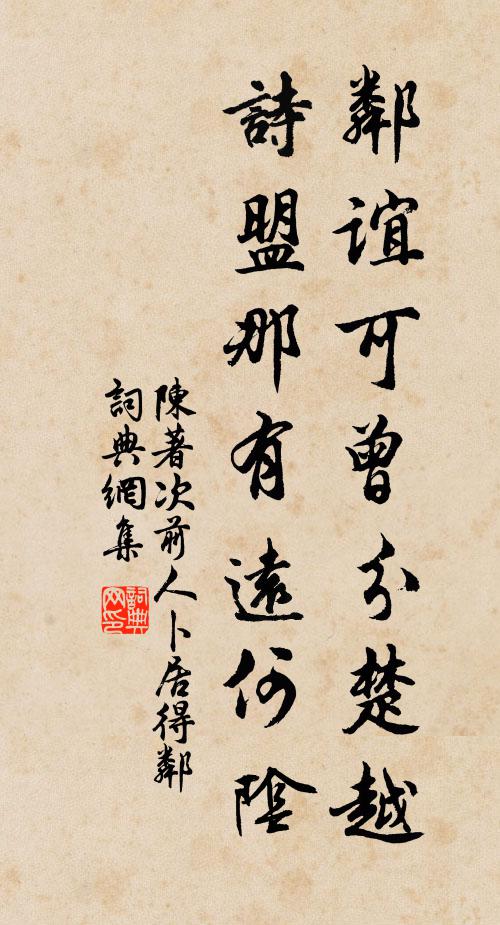 鄰誼可曾分楚越
詩盟那有遠何陰
陳著次前人卜居得鄰
詞典網集
詞典
网印